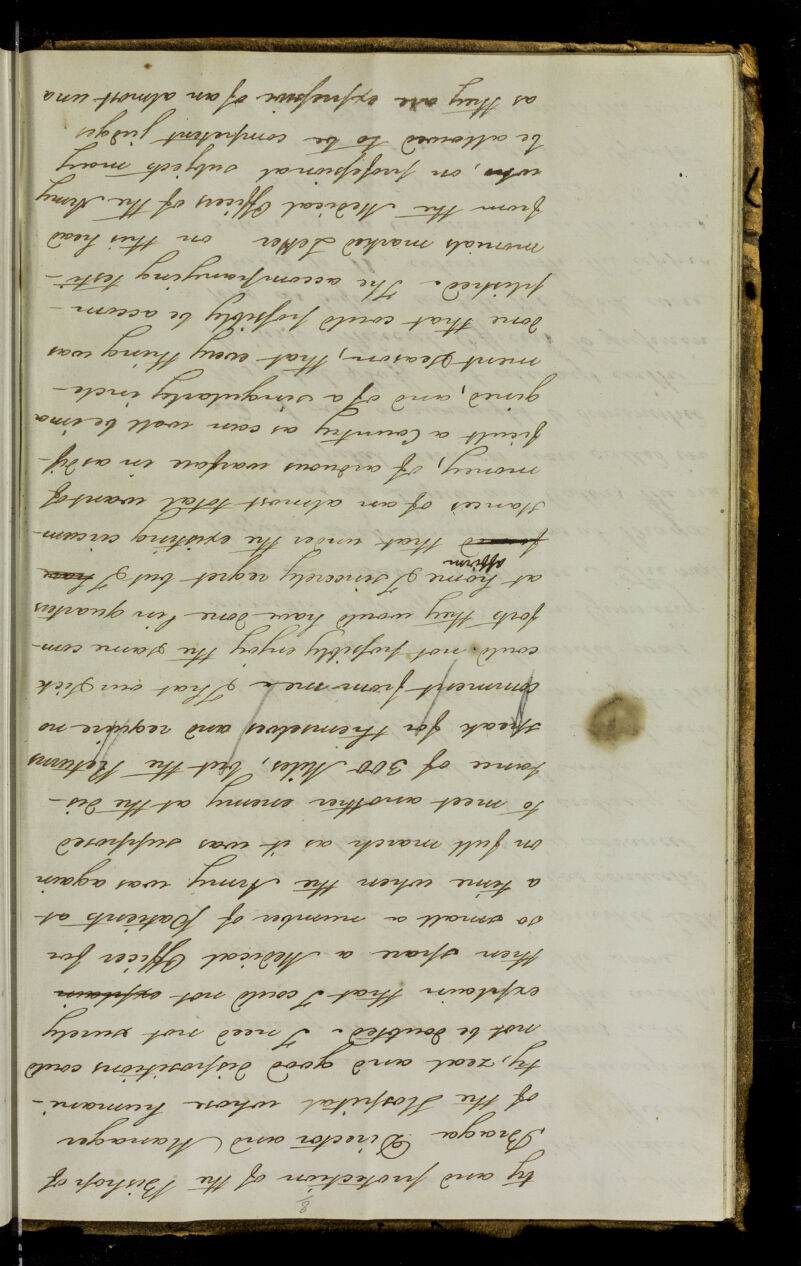 8
ty and protection of the Bishop of
Braga Director and Manager
of the Hospital whose humani-
ty, zeal and good dispositions could
not be doubted. I need not surely
explain that I could not explain
then spare a Medical Officer for
so small a number of Patients at
a time when the Army was again
on full march as it was supposed
to meet another enemy at the dis-
tance of 300 Miles, but the Returns
speak for themselves and require no
comment from me. That our sick
could not possibly enjoy the same com-
forts they would have done in quarters
at home I sincerely regret but I
affirm
that under the existing circum-
stances of an almost total want of
money, of arduous warfare in as dif-
ficult a Country as can well be ima
gined, and of a singularly incle-
ment season, that every thing was
done that could possibly be accom-
plished. The accompanying testi-
monials marked Letter on this head
from the Medical Officers of the Army
who, on professional subjects may
be allowed to be competent judges
as they are expressive of an almost una